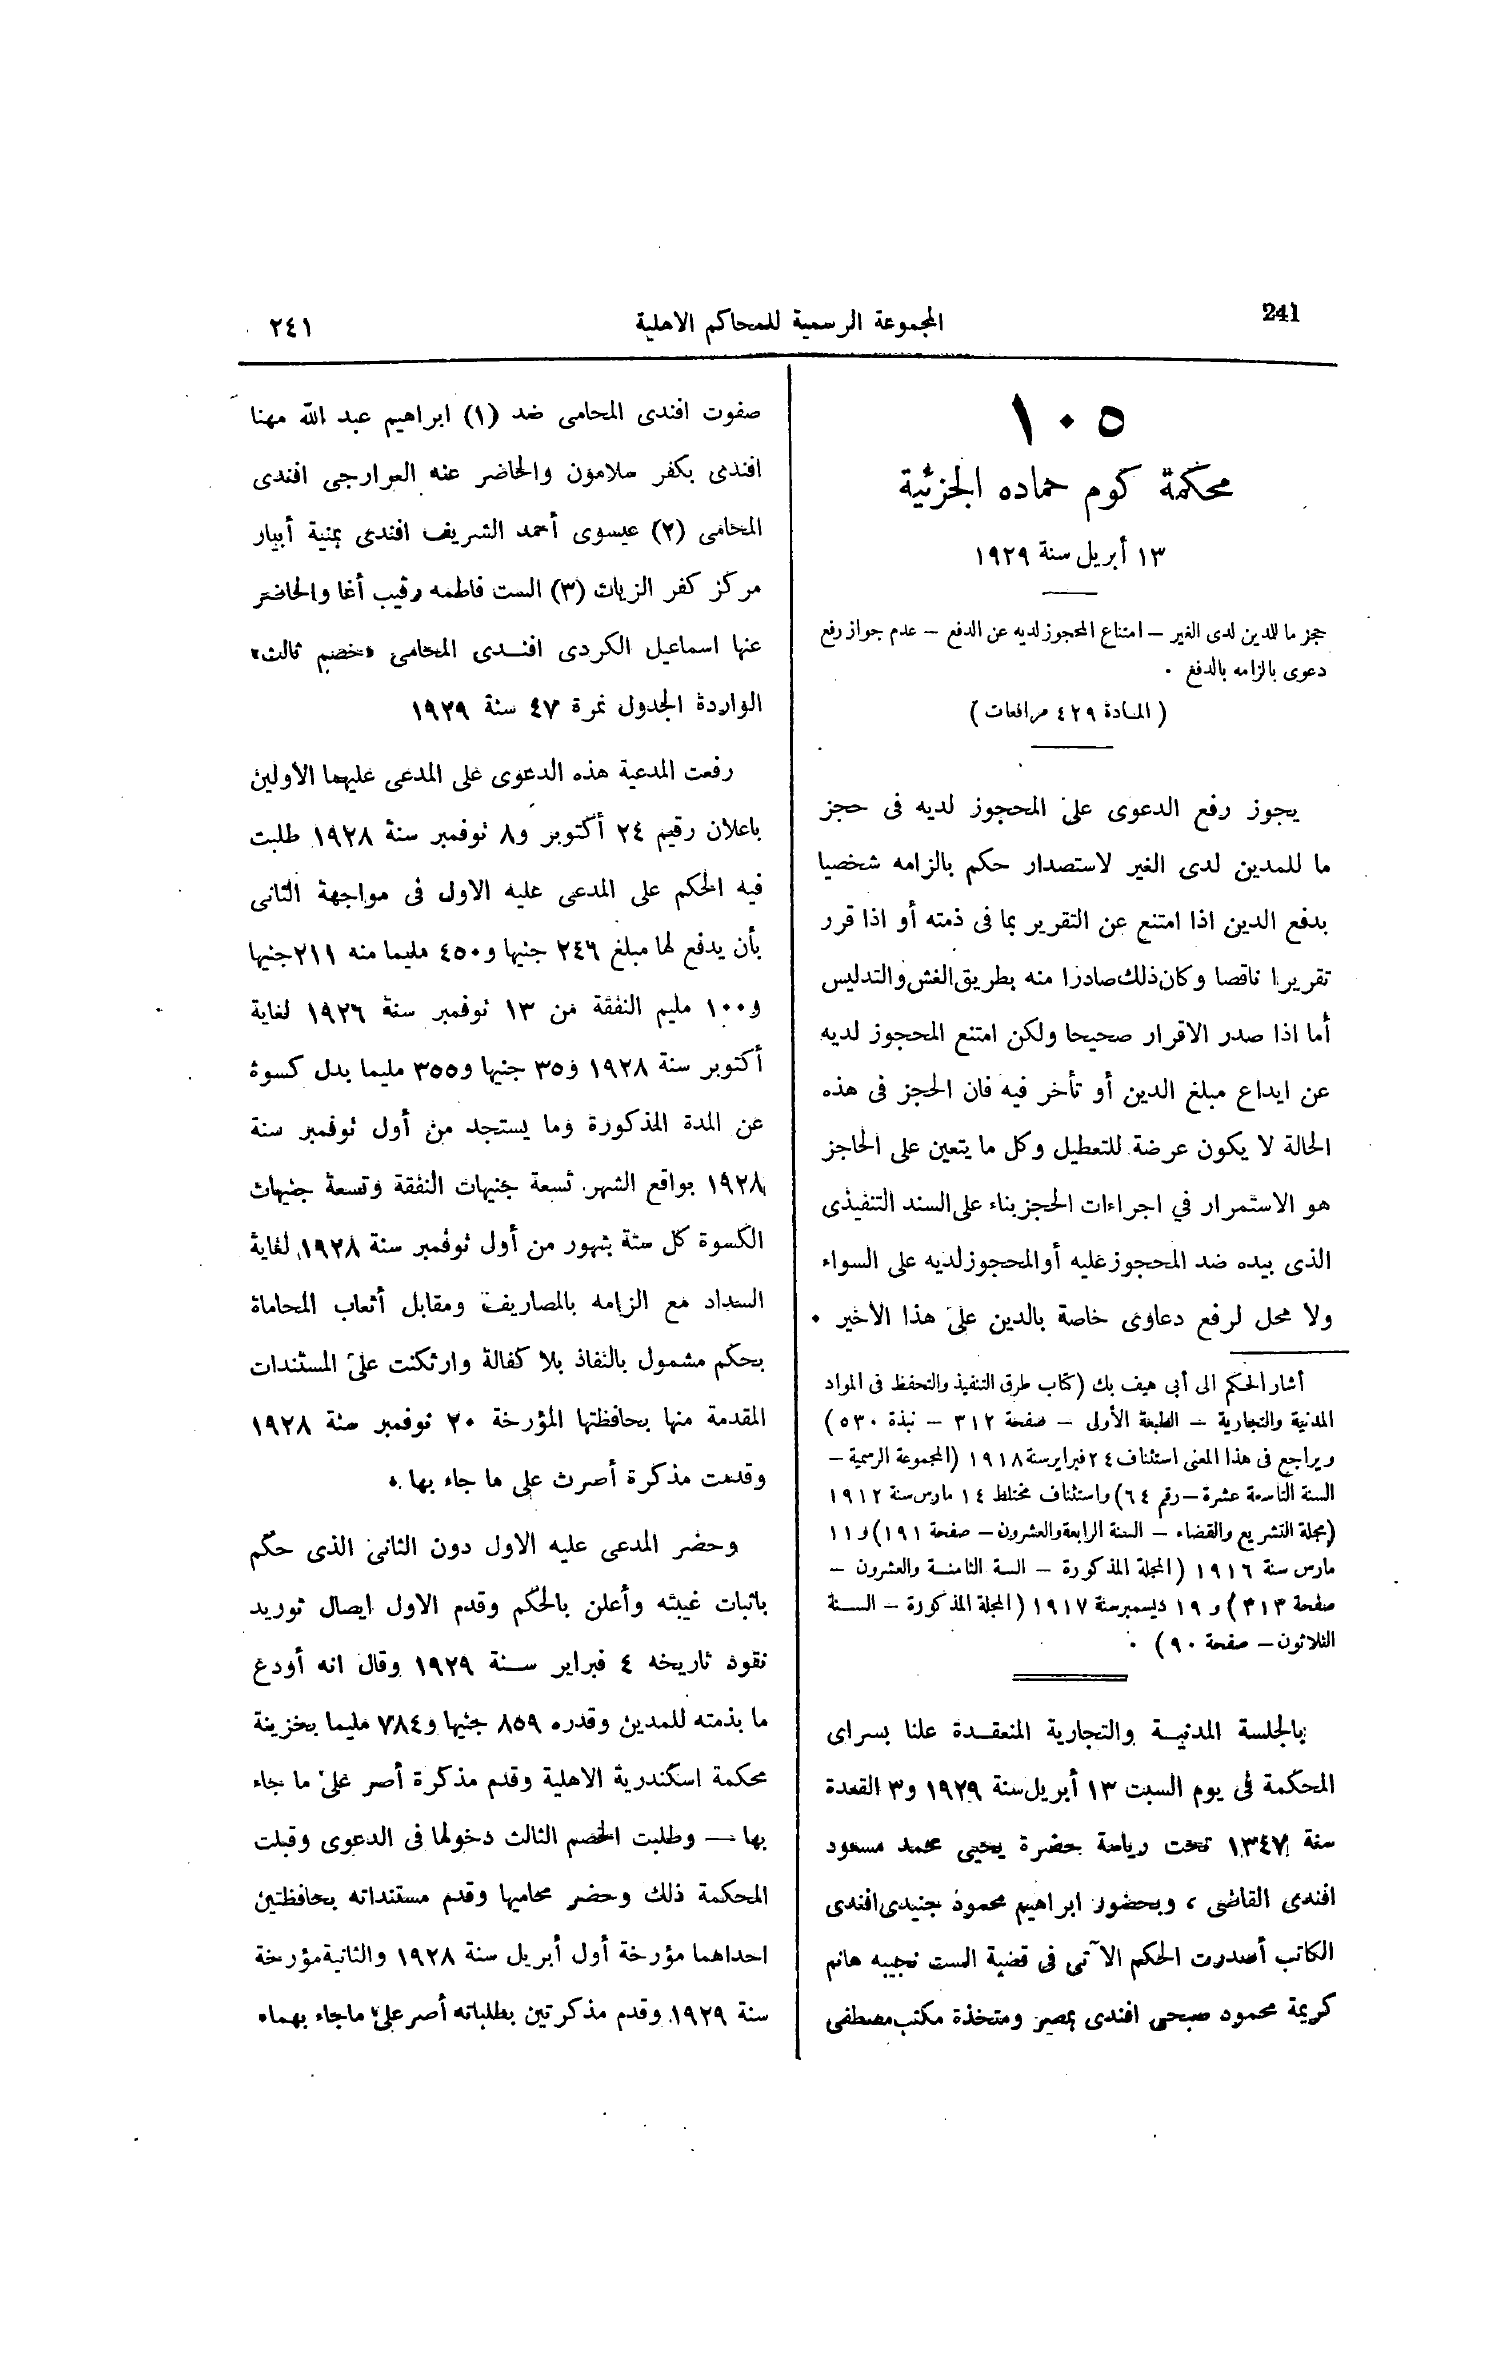 241
المجموعة الرسمية للمحاكم الاهلية
٢٤١
١٠٥
محكمة كوم حماده الجزئية
١٣ أبريل سنة ١٩٢٩
حجز ما للدين لدى الغير – امتناع المحجوز لديه عن الدفع – عدم جواز رفع
دعوى بالزامه بالدفع .
( المادة ٤٢٩ مرافعات )
يجوز رفع الدعوى على المحجوز لديه فى حجز
ما للمدين لدى الغير لاستصدار حكم بالزامه شخصيا
بدفع الدين اذا امتنع عن التقرير بما فى ذمته أو اذا قرر
تقريرا ناقصا وكان ذلك صادرا منه بطريق الغش والتدليس
أما اذا صدر الاقرار صحيحا ولكن امتنع المحجوز لديه
عن ايداع مبلغ الدين أو تأخر فيه فان الحجز فى هذه
الحالة لا يكون عرضة للتعطيل وكل ما يتعين على الحاجز
هو الاستمرار في اجراءات الحجز بناء على السند التنفيذى
الذى بيده ضد المحجوز عليه أو المحجوز لديه على السواء
ولا محل لرفع دعاوى خاصة بالدين على هذا الاخير .
أشار الحكم الى أبى هيف بك (كتاب طرق التنفيذ والتحفظ فى المواد
المدنية والتجارية – الطبعة الأولى – صفحة ٣١٢ – نبذة ٥٣٠)
ويراجع فى هذا المعنى استئناف ٢٤ فبراير سنة ١٩١٨ (المجموعة الرسمية –
السنة التاسعة عشرة – رقم ٦٤) واستئناف مختلط ١٤ مارس سنة ١٩١٢
(مجلة التشريع والقضاء – السنة الرابعة والعشرون – صفحة ١٩١) و ١١
مارس سنة ١٩١٦ (المجلة المذكورة – السة الثامنة والعشرون –
صفحة ٣١٣) و ١٩ ديسمبر سنة ١٩١٧ (المجلة المذكورة – السنة
الثلاثون – صفحة ٩٠) .
بالجلسة المدنية والتجارية المنعقدة علنا بسراى
المحكمة فى يوم السبت ١٣ أبريل سنة ١٩٢٩ و ٣ القعدة
سنة ١٣٤٧ تحت رياسة حضرة يحيى محمد مسعود
افندى القاضى ، وبحضور ابراهيم محمود جنيدى افندى
الكاتب أصدرت الحكم الآتى فى قضية الست نجيبه هانم
كريمة محمود صبحى افندى بمصر ومتخذة مكتب مصطفى
صفوت افندى المحامى ضد (١) ابراهيم عبد الله مهنا
افندى بكفر سلامون والحاضر عنه العرارجى افندى
المحامى (٢) عيسوى أحمد الشريف افندى بمنية أبيار
مركز كفر الزيات (٣) الست فاطمه رقيب أغا والحاضر
عنها اسماعيل الكردى افندى المحامى «خصم ثالث»
الواردة الجدول نمرة ٤٧ سنة ١٩٢٩
رفعت المدعية هذه الدعوى على المدعى عليهما الاولين
باعلان رقيم ٢٤ أكتوبر و ٨ نوفمبر سنة ١٩٢٨ طلبت
فيه الحكم على المدعى عليه الاول فى مواجهة الثانى
بأن يدفع لها مبلغ ٢٤٦ جنيها و ٤٥٠ مليما منه ٢١١ جنيها
و ١٠٠ مليم النفقة من ١٣ نوفمبر سنة ١٩٢٦ لغاية
أكتوبر سنة ١٩٢٨ و ٣٥ جنيها و ٣٥٥ مليما بدل كسوة
عن المدة المذكورة وما يستجد من أول نوفمبر سنة
١٩٢٨ بواقع الشهر تسعة جنيهات النفقة وتسعة جنيهات
الكسوة كل ستة شهور من أول نوفمبر سنة ١٩٢٨ لغاية
السداد مع الزامه بالمصاريف ومقابل أتعاب المحاماة
بحكم مشمول بالنفاذ بلا كفالة وارتكنت على المستندات
المقدمة منها بحافظتها المؤرخة ٢٠ نوفمبر سنة ١٩٢٨
وقدمت مذكرة أصرت على ما جاء بها .
وحضر المدعى عليه الاول دون الثانى الذى حكم
باثبات غيبته وأعلن بالحكم وقدم الاول ايصال توريد
نقود تاريخه ٤ فبراير سنة ١٩٢٩ وقال انه أودع
ما بذمته للمدين وقدره ٨٥٩ جنيها و ٧٨٤ مليما بخزينة
محكمة اسكندرية الاهلية وقدم مذكرة أصر على ما جاء
بها — وطلبت الخصم الثالث دخولها فى الدعوى وقبلت
المحكمة ذلك وحضر محاميها وقدم مستنداته بحافظتين
احداهما مؤرخة أول أبريل سنة ١٩٢٨ والثانية مؤرخة
سنة ١٩٢٩ وقدم مذكرتين بطلباته أصر على ما جاء بهما .